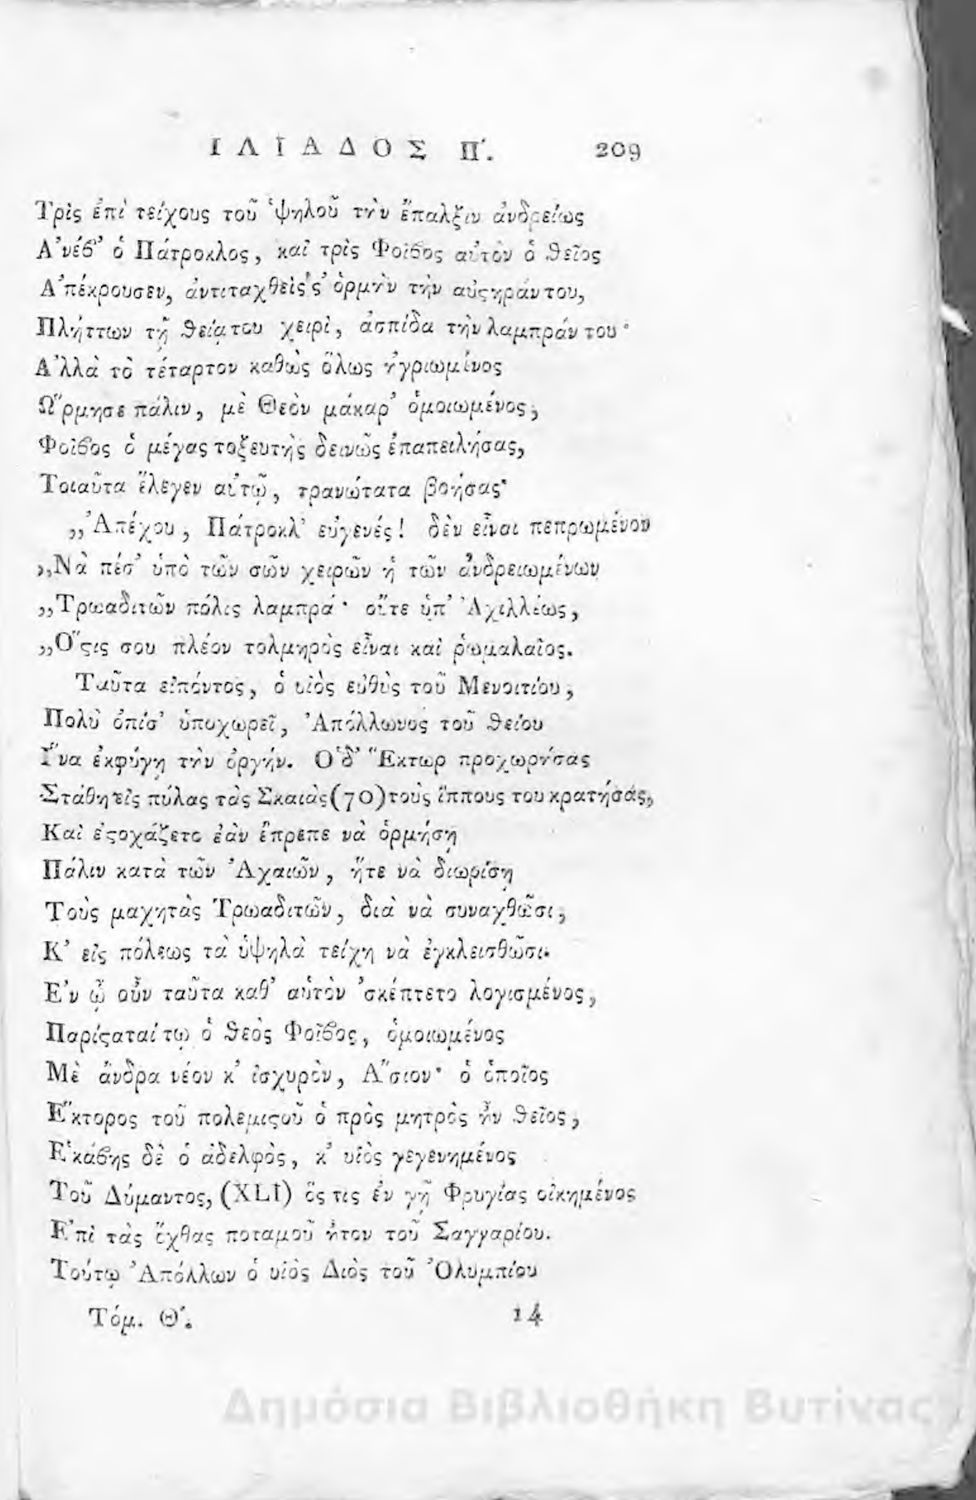 ΙΛΙΑΔΟΣ Π΄. 209
Τρὶς ἐπὶ τείχους τοῦ ὑψηλοῦ τὴν ἔπαλξιν ἀνδρείως
Ἀνέβ' ὁ Πάτροκλος, καὶ τρὶς Φοῖβος αὐτὸν ὁ θεῖος
Ἀπέκρουσεν, ἀντιταχθεὶς ς' ὁρμὴν τὴν αὐςηράν του,
Πλήττων τῇ θείᾳ του χειρὶ, ἀσπίδα τὴν λαμπράν του·
Ἀλλὰ τὸ τέταρτον καθὼς ὅλως ἠγριωμένος
Ὥρμησε πάλιν, μὲ Θεὸν μάκαρ' ὁμοιωμένος,
Φοῖβος ὁ μέγας τοξευτὴς δεινῶς ἐπαπειλήσας,
Τοιαῦτα ἔλεγεν αὐτῷ, τρανώτατα βοήσας·
„Ἀπέχου, Πάτροκλ' εὐγενές! δὲν εἶναι πεπρωμένον
„Νὰ πέσ' ὑπὸ τῶν σῶν χειρῶν ἡ τῶν ἀνδρειωμένων
„Τρωαδιτῶν πόλις λαμπρά· οὔτε ὑπ' Ἀχιλλέως,
„Ὅςις σου πλέον τολμηρὸς εἶναι καὶ ῥωμαλαῖος.
Ταῦτα εἰπόντος, ὁ υἱὸς εὐθὺς τοῦ Μενοιτίου,
Πολὺ ὀπίσ' ὑποχωρεῖ, Ἀπόλλωνος τοῦ θείου
Ἵνα ἐκφύγῃ τὴν ὀργήν. Ὁ δ' Ἕκτωρ προχωρήσας
Στάθη εἰς πύλας τὰς Σκαιὰς (70) τοὺς ἵππους του κρατήσας,
Καὶ ἐςοχάζετο ἐὰν ἔπρεπε νὰ ὁρμήσῃ
Πάλιν κατὰ τῶν Ἀχαιῶν, ἤτε νὰ διωρίσῃ
Τοὺς μαχητὰς Τρωαδιτῶν, διὰ νὰ συναχθῶσι,
Κ' εἰς πόλεως τὰ ὑψηλὰ τείχη νὰ ἐγκλεισθῶσι.
Ἐν ᾧ οὖν ταῦτα καθ' αὑτὸν 'σκέπτετο λογισμένος,
Παρίςαταί τῳ ὁ θεὸς Φοῖβος, ὁμοιωμένος
Μὲ ἄνδρα νέον κ' ἰσχυρὸν, Ἄσιον· ὁ ὁποῖος
Ἕκτορος τοῦ πολεμιςοῦ ὁ πρὸς μητρὸς ἦν θεῖος,
Ἑκάβης δὲ ὁ ἀδελφὸς, κ' υἱὸς γεγενημένος
Τοῦ Δύμαντος, (XLI) ὅς τις ἐν γῇ Φρυγίας οἰκημένος
Ἐπὶ τὰς ὄχθας ποταμοῦ ἦτον τοῦ Σαγγαρίου.
Τούτῳ Ἀπόλλων ὁ υἱὸς Διὸς τοῦ Ὀλυμπίου
Τόμ. Θ΄. 14
Δημόσια Βιβλιοθήκη Βυτίνας